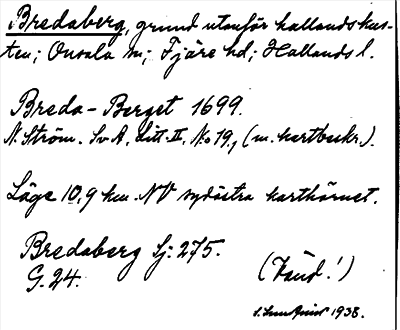 Bredaberg, grund utanför hallandskus-
ten; Onsala sn; Fjäre hd; Hallands l.
Breda-Berget 1699.
N. Ström. Sv. A. Litt. II. No 19, (m. kartbeskr.).
Läge 10,9 km. NV sydöstra karthörnet.
Bredaberg Sj. 275.
G. 24. (Vänd!)
1938.